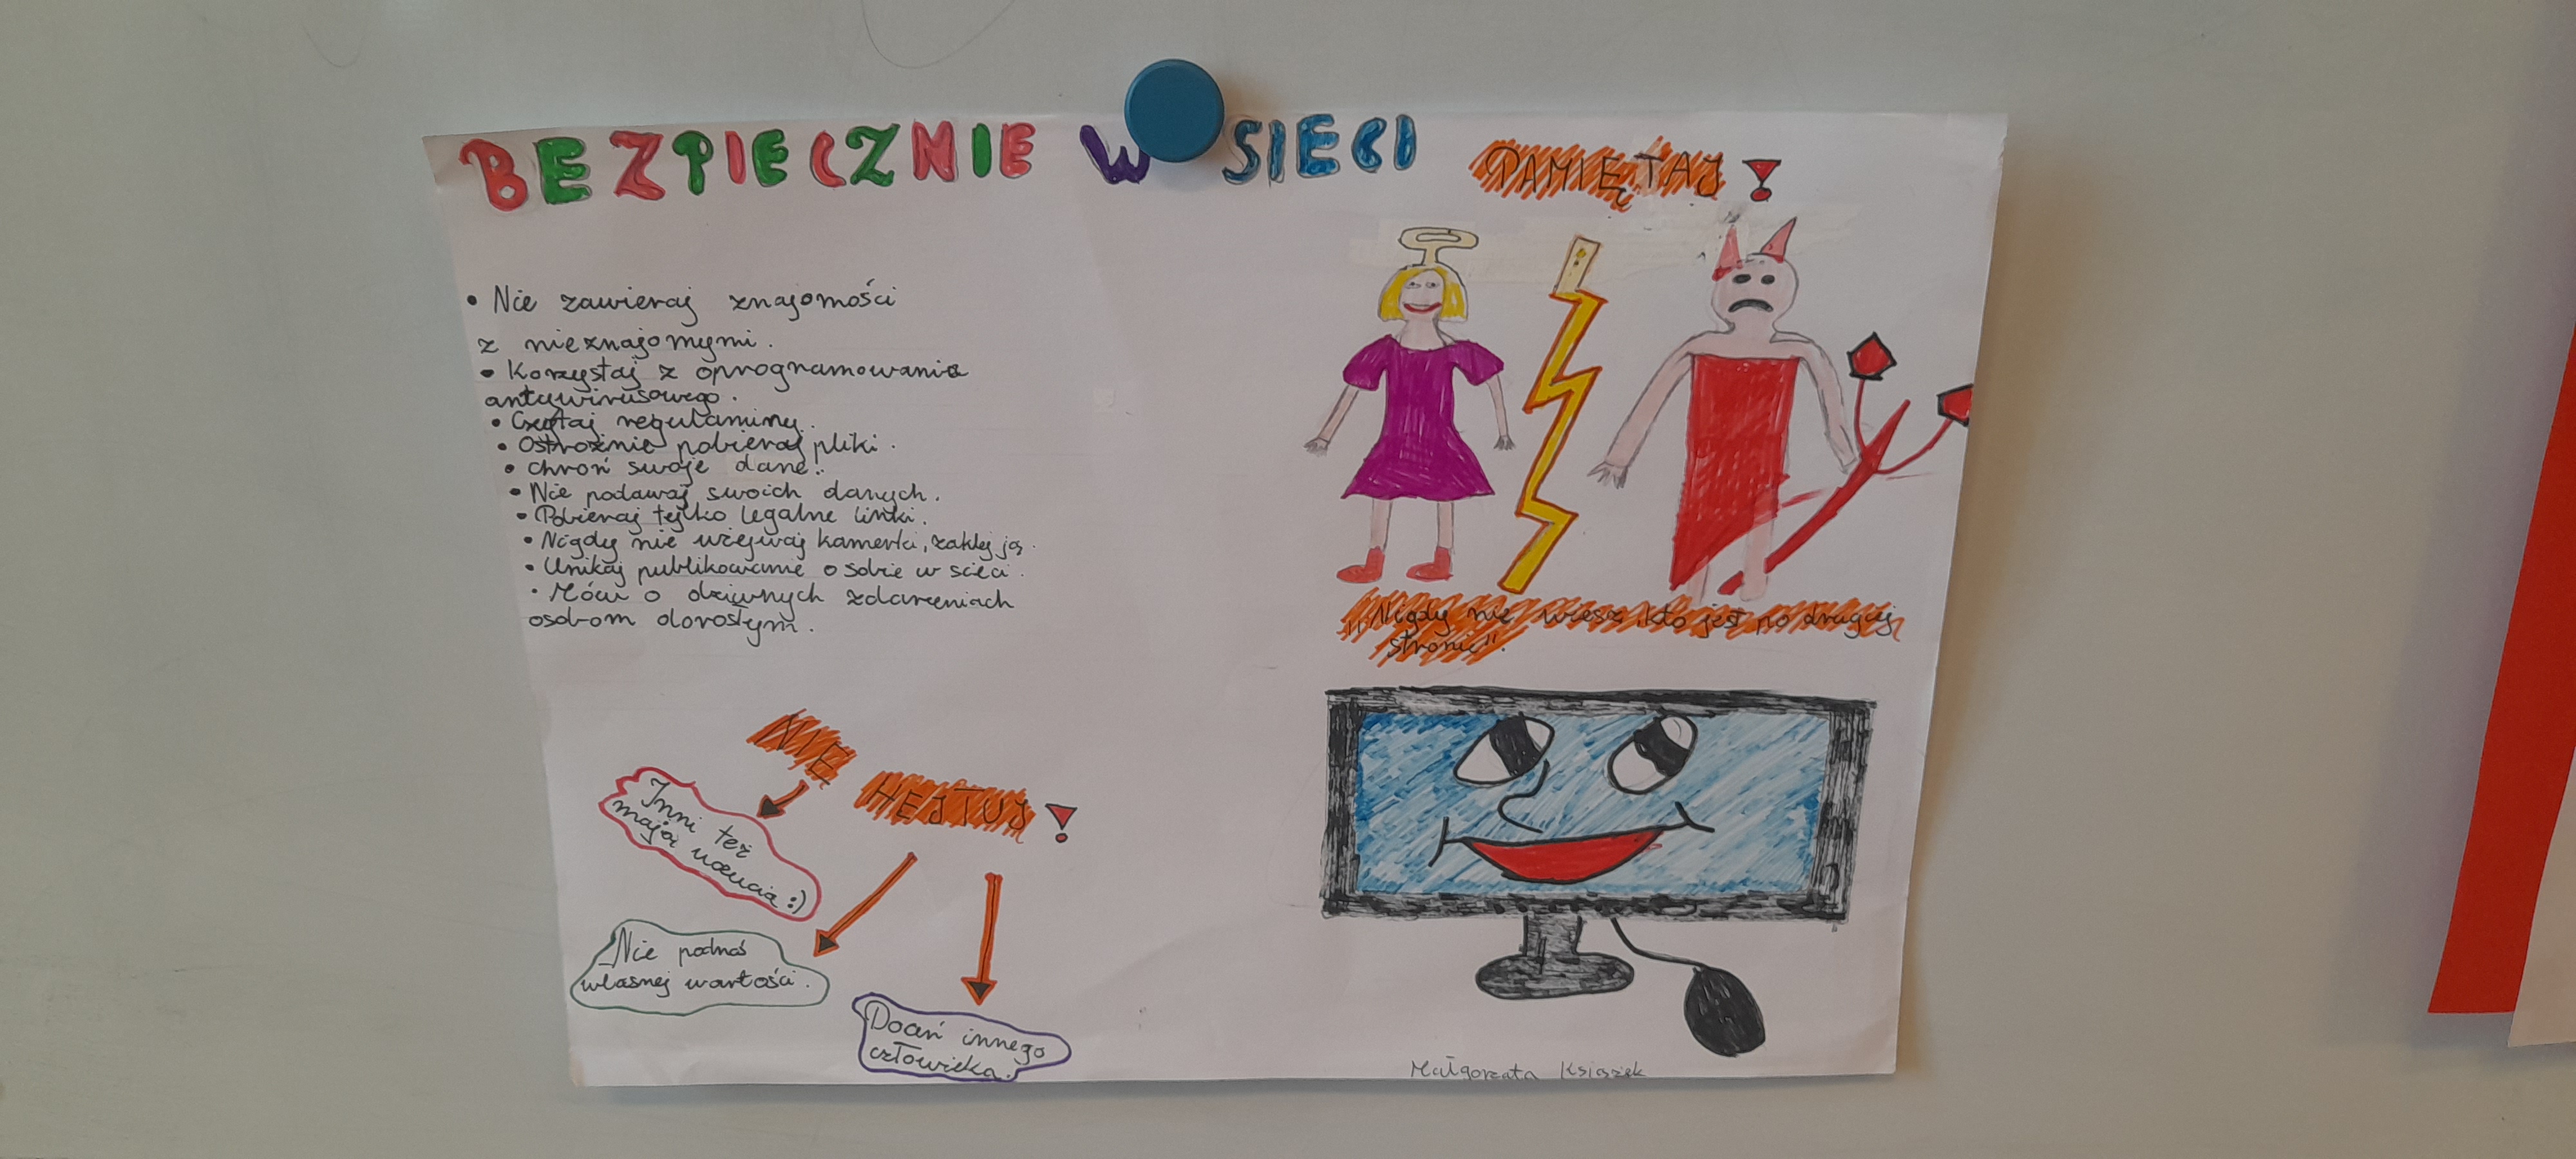 BEZPIECZNIE W SIECI
PAMIĘTAJ!
• Nie zawieraj znajomości
z nieznajomymi.
• Korzystaj z oprogramowania
antywirusowego.
• Czytaj regulaminy.
• Ostrożnie pobieraj pliki.
• chroń swoje dane.
• Nie podawaj swoich danych.
• Pobieraj tylko legalne linki.
• Nigdy nie używaj kamerki, zaklej ją.
• Unikaj publikowanie o sobie w sieci.
• Mów o dziwnych zdarzeniach
osobom dorosłym.
„Nigdy nie wiesz kto jest po drugiej
stronie".
NIE
HEJTUJ!
Inni też
mają uczucia :)
Nie podnoś
własnej wartości.
Doceń innego
człowieka.
Małgorzata Książek